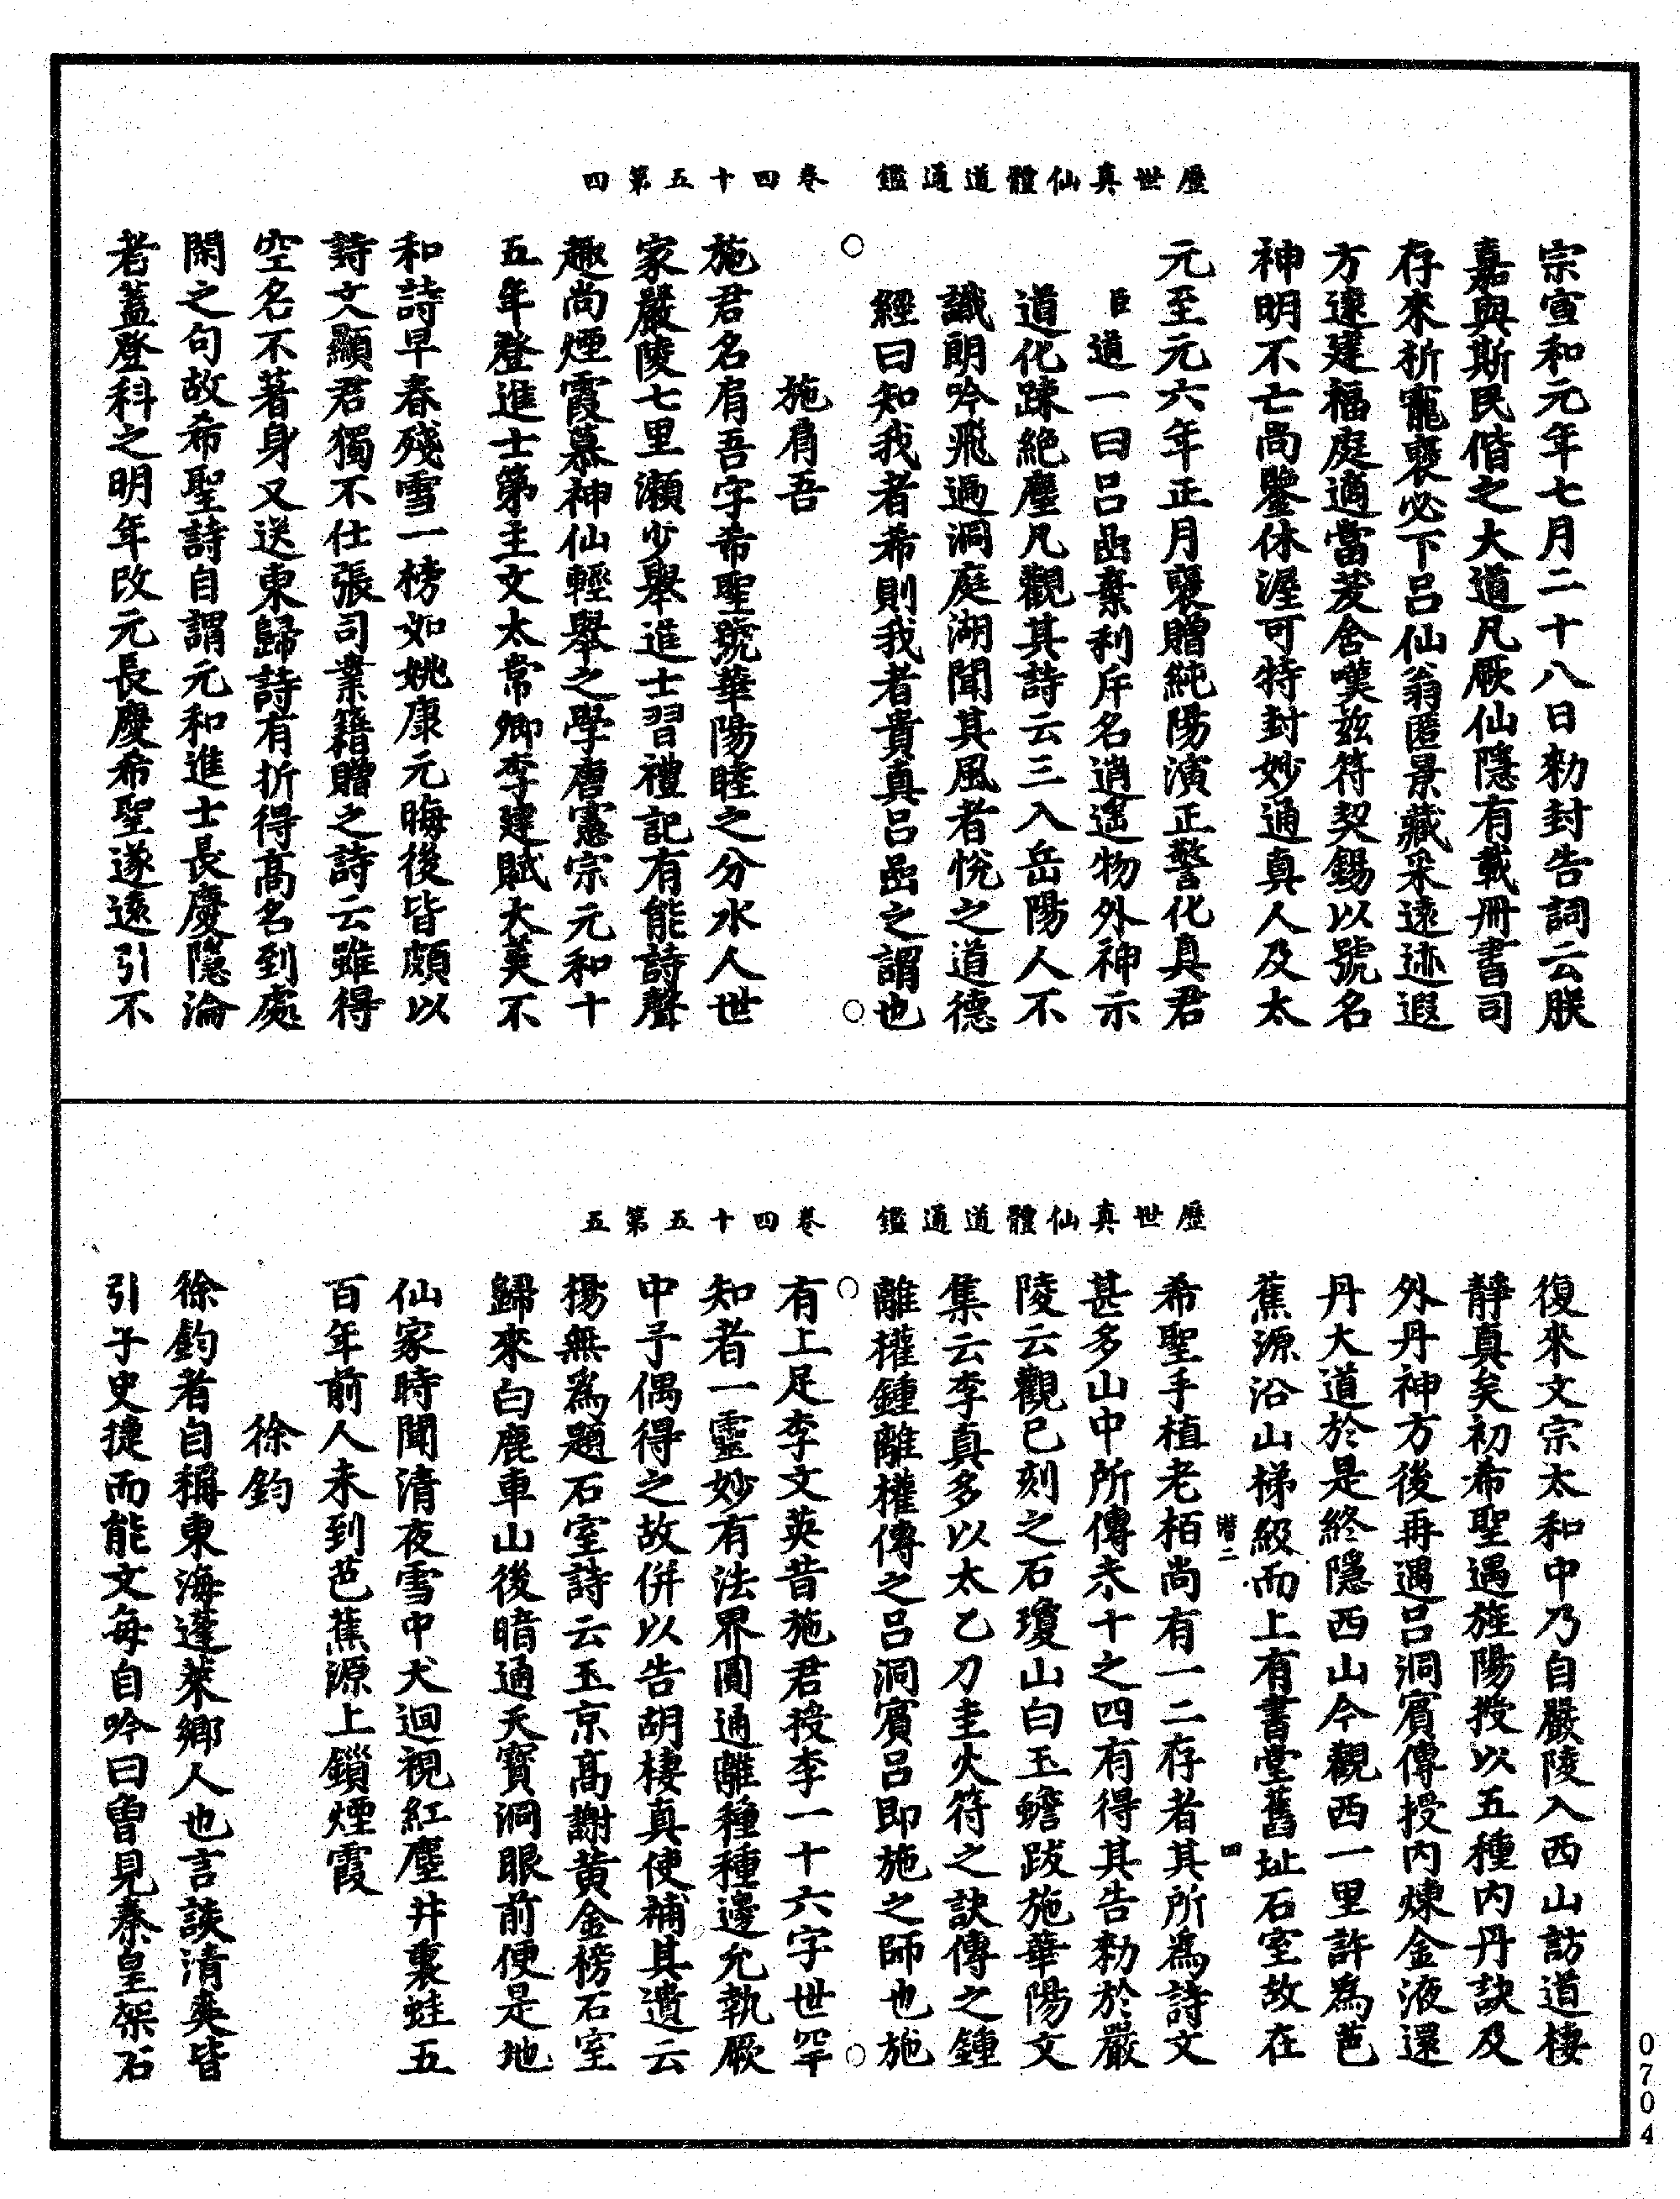 歷世真仙體道通鑑　卷四十五第四
宗宣和元年七月二十八日勑封告詞云朕
嘉與斯民偕之大道凡厥仙隱有載冊書司
存來祈寵褒必下呂仙翁匿景藏采遠迹遐
方逮建福庭適當茇舍嘆茲符契錫以號名
神明不亡尚鑒休渥可特封妙通真人及太
元至元六年正月褒贈純陽演正警化真君
臣道一曰呂嵒棄利斥名逍遙物外神示
道化踈絕塵凡觀其詩云三入岳陽人不
識朗吟飛過洞庭湖聞其風者悅之道德
經曰知我者希則我者貴真呂嵒之謂也
施肩吾
施君名肩吾字希聖號華陽睦之分水人世
家嚴陵七里瀨少舉進士習禮記有能詩聲
趣尚煙霞慕神仙輕舉之學唐憲宗元和十
五年登進士第主文太常卿李建賦大羹不
和詩早春殘雪一榜如姚康元晦後皆頗以
詩文顯君獨不仕張司業籍贈之詩云雖得
空名不著身又送東歸詩有折得高名到處
閑之句故希聖詩自謂元和進士長慶隱淪
者蓋登科之明年改元長慶希聖遂遠引不
歷世真仙體道通鑑　卷四十五第五
復來文宗太和中乃自嚴陵入西山訪道棲
靜真矣初希聖遇旌陽授以五種內丹訣及
外丹神方後再遇呂洞賓傳授內煉金液還
丹大道於是終隱西山今觀西一里許為芭
蕉源沿山梯級而上有書堂舊址石室故在
潛二　四
希聖手植老栢尚有一二存者其所為詩文
甚多山中所傳未十之四有得其告勑於嚴
陵云觀已刻之石瓊山白玉蟾跋施華陽文
集云李真多以太乙刀圭火符之訣傳之鍾
離權鍾離權傳之呂洞賓呂即施之師也施
有上足李文英昔施君授李一十六字世罕
知者一靈妙有法界圓通離種種邊允執厥
中予偶得之故併以告胡棲真使補其遺云
楊無為題石室詩云玉京高謝黃金榜石室
歸來白鹿車山後暗通天寶洞眼前便是地
仙家時聞清夜雪中犬迴視紅塵井裏蛙五
百年前人未到芭蕉源上鎖煙霞
徐鈞
徐鈞者自稱東海蓬萊鄉人也言談清爽皆
引子史捷而能文每自吟曰曾見秦皇架石
0704